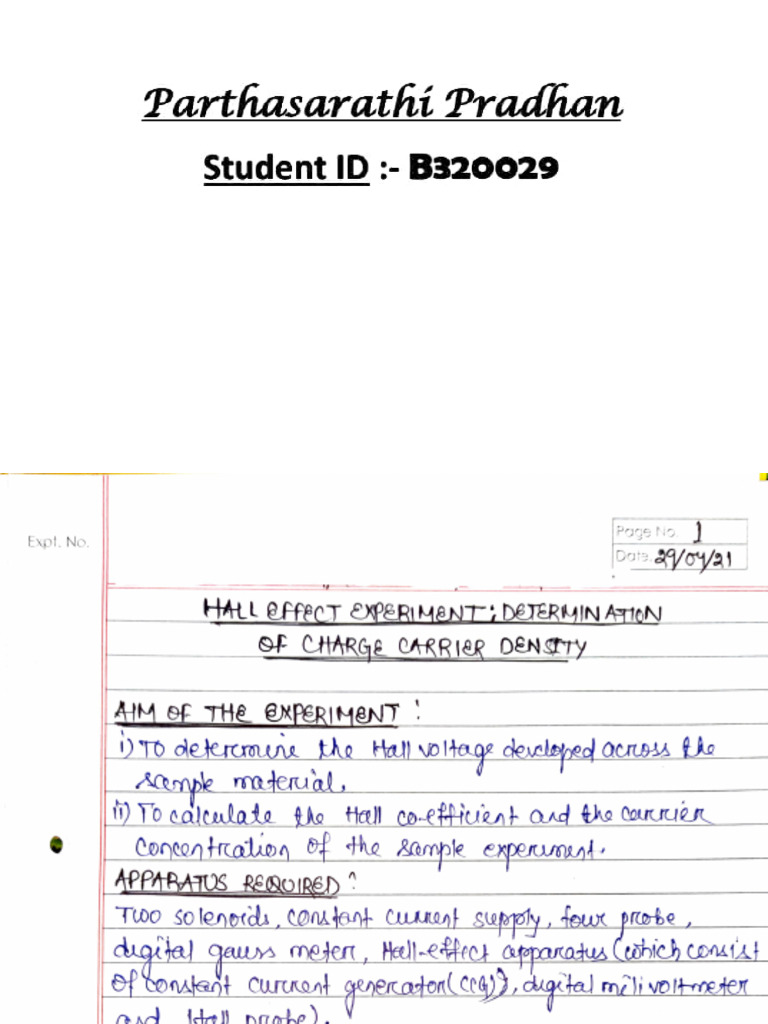 Parthasarathi Pradhan
Student ID :- B320029
Expt. No.
Page No. 1
Date. 29/04/21
HALL EFFECT EXPERIMENT: DETERMINATION
OF CHARGE CARRIER DENSITY
AIM OF THE EXPERIMENT :
i) To determine the Hall voltage developed across the
sample material.
ii) To calculate the Hall co-efficient and the carrier
concentration of the sample experiment.
APPARATUS REQUIRED :
Two solenoids, constant current supply, four probe,
digital gauss meter, Hall-effect apparatus (which consist
of constant current generator (CCG)), digital milivoltmeter
and Hall probe).